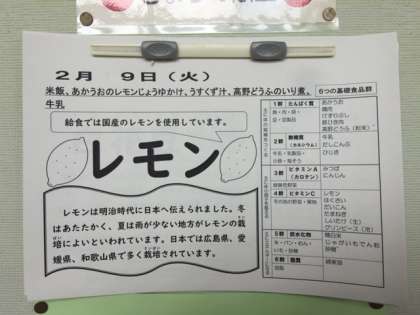 2月 9日（火）
米飯、あかうおのレモンじょうゆかけ、うすくず汁、高野どうふのいり煮、
牛乳
給食では国産のレモンを使用しています。
レモン
レモンは明治時代に日本へ伝えられました。冬
はあたたかく、夏は雨が少ない地方がレモンの栽
培によいといわれています。日本では広島県、愛
媛県、和歌山県で多く栽培されています。
6つの基礎食品群
1群 たんぱく質
あかうお
鶏肉
けずりぶし
高野どうふ（粉末）
2群 無機質
（カルシウム）
牛乳
だしこんぶ
ひじき
3群 ビタミンA
（カロテン）
みつば
にんじん
緑黄色野菜
4群 ビタミンC
レモン
はくさい
だいこん
たまねぎ
しいたけ（生）
グリンピース（冷）
5群 炭水化物
精白米
じゃがいもでん粉
砂糖
6群 脂質
油脂
綿実油